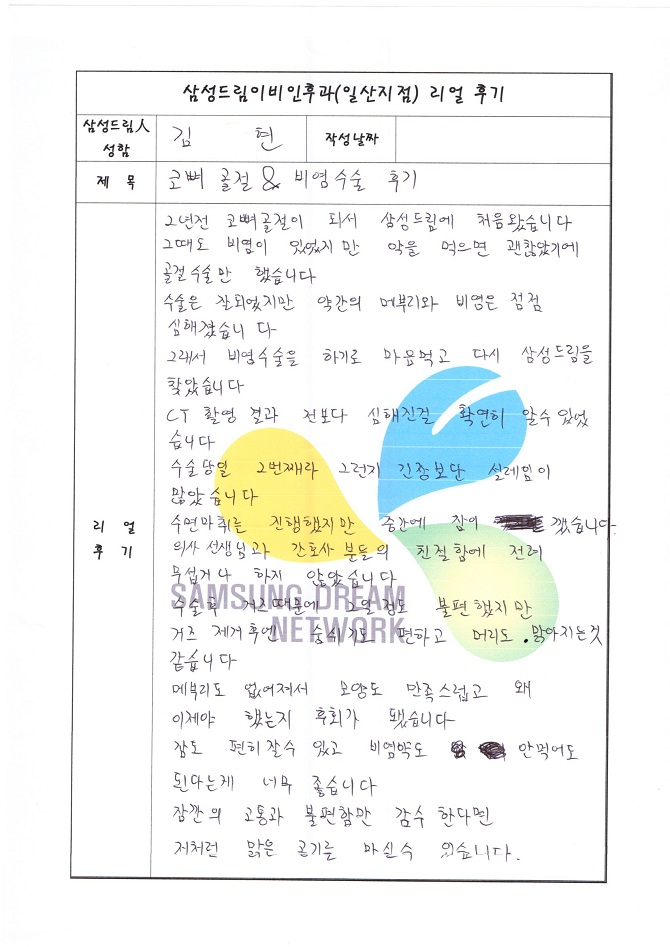 삼성드림이비인후과(일산지점) 리얼 후기
삼성드림人
성함
김 현
작성날짜
제 목
코뼈 골절 & 비염수술 후기
리 얼
후 기
2년전 코뼈골절이 되서 삼성드림에 처음왔습니다
그때도 비염이 있었지만 약을 먹으면 괜찮았기에
골절수술만 했습니다
수술은 잘되었지만 약간의 메부리와 비염은 점점
심해졌습니 다
그래서 비염수술을 하기로 마음먹고 다시 삼성드림을
찾았습니다
CT 촬영 결과 전보다 심해진걸 확연히 알수 있었
습니다
수술당일 2번째라 그런지 긴장보단 설레임이
많았 습니다
수면마취로 진행했지만 중간에 잠이 깼습니다
의사 선생님과 간호사 분들의 친절함에 전혀
무섭거나 하지 않았습니다
SAMSUNG DREAM
NETWORK
수술후 거즈때문에 2일정도 불편했지만
거즈 제거후엔 숨쉬기도 편하고 머리도 맑아지는것
같습니다
메부리도 없어져서 모양도 만족스럽고 왜
이제야 했는지 후회가 됐습니다
잠도 편히잘수 있고 비염약도 안먹어도
된다는게 너무 좋습니다
잠깐의 고통과 불편함만 감수 한다면
저처럼 맑은 공기를 마실수 있습니다.